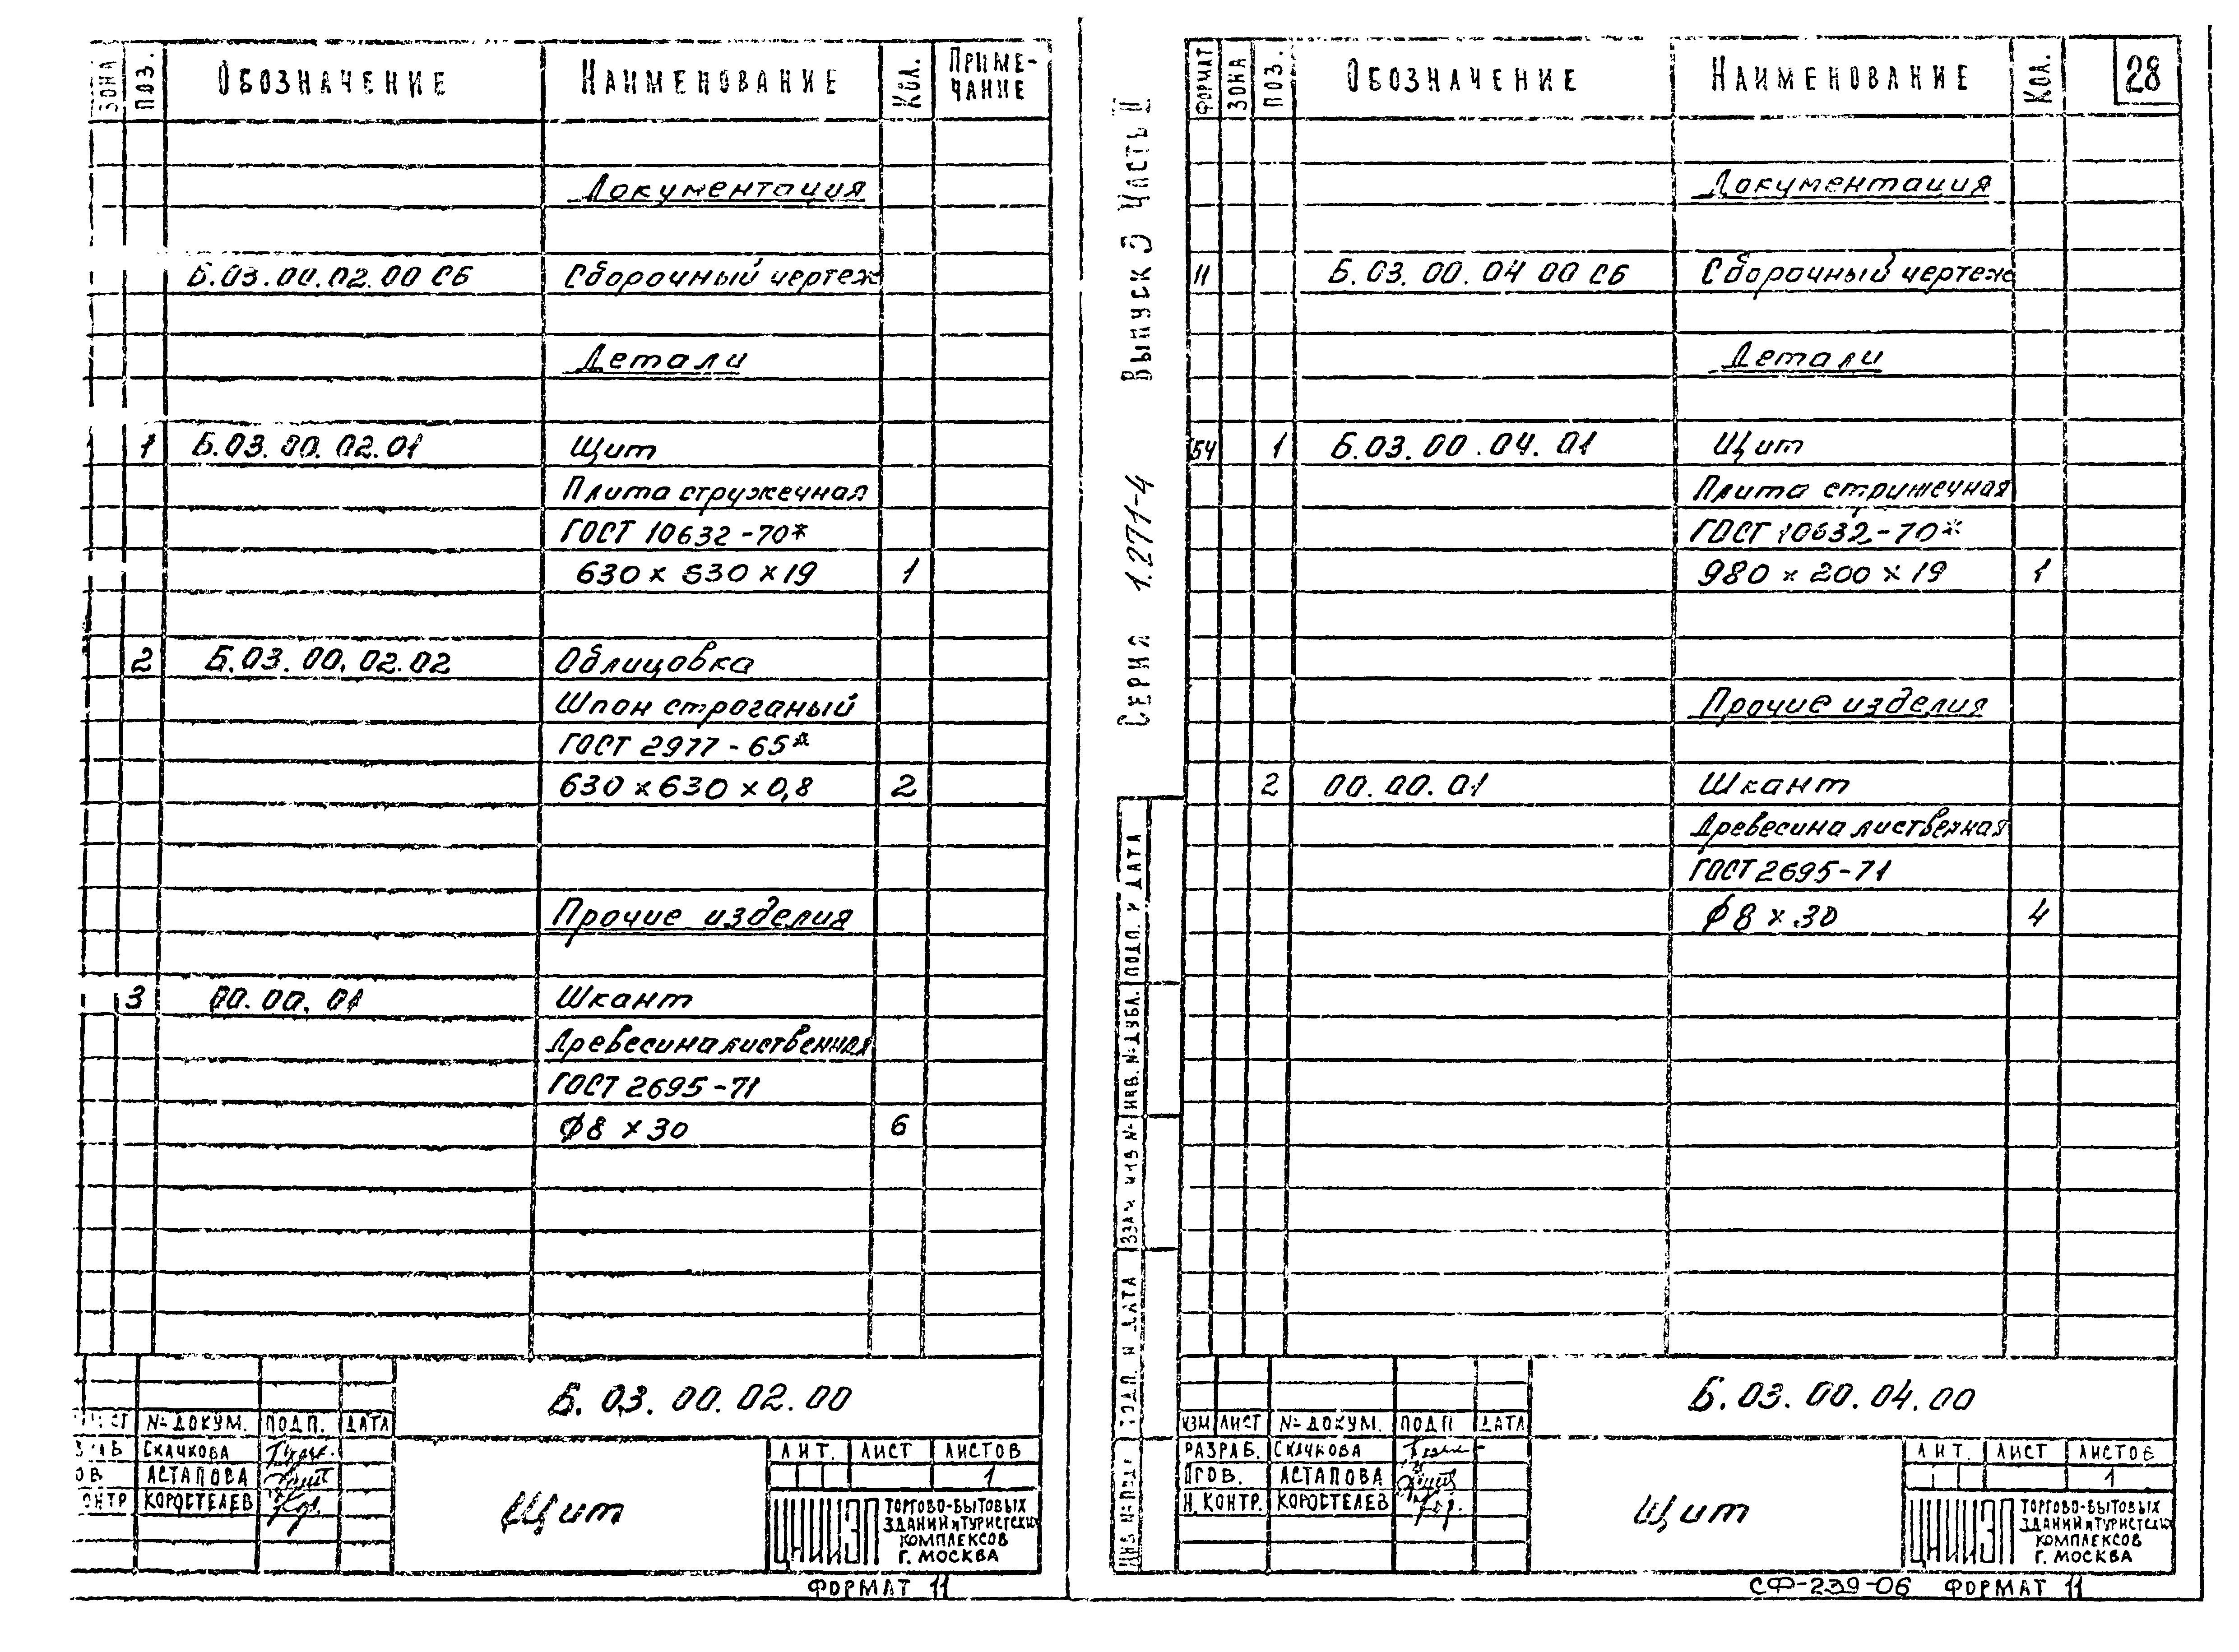 ЗОНА ПОЗ. ОБОЗНАЧЕНИЕ НАИМЕНОВАНИЕ КОЛ. ПРИМЕ-
ЧАНИЕ
Документация
Б.03.00.02.00 СБ Сборочный чертеж
Детали
1 Б.03.00.02.01 Щит
Плита стружечная
ГОСТ 10632-70*
630 х 630 х 19 1
2 Б.03.00.02.02 Облицовка
Шпон строганый
ГОСТ 2977-65*
630 х 630 х 0,8 2
Прочие изделия
3 00.00.01 Шкант
Древесина лиственная
ГОСТ 2695-71
Ф8 х 30 6
Б.03.00.02.00
№ ДОКУМ. ПОДП. ДАТА
СКАЧКОВА
АСТАПОВА
КОРОСТЕЛЕВ
Щит
ЛИТ. ЛИСТ ЛИСТОВ
1
ЦНИИЭП
ТОРГОВО-БЫТОВЫХ
ЗДАНИЙ И ТУРИСТСКИХ
КОМПЛЕКСОВ
Г. МОСКВА
ФОРМАТ 11
СЕРИЯ 1.271-4 ВЫПУСК 3 ЧАСТЬ II
ФОРМАТ ЗОНА ПОЗ. ОБОЗНАЧЕНИЕ НАИМЕНОВАНИЕ КОЛ. 28
Документация
11 Б.03.00.04 00 СБ Сборочный чертеж
Детали
БЧ 1 Б.03.00.04.01 Щит
Плита стружечная
ГОСТ 10632-70*
980 х 200 х 19 1
Прочие изделия
2 00.00.01 Шкант
Древесина лиственная
ГОСТ 2695-71
Ф8 х 30 4
ПОДП. И ДАТА
ИНВ. № ДУБЛ.
ВЗАМ ИНВ №
ПОДП. И ДАТА
ИНВ № ПОДЛ
Б.03.00.04.00
ИЗМ ЛИСТ № ДОКУМ. ПОДП ДАТА
РАЗРАБ. СКАЧКОВА
ПРОВ. АСТАПОВА
Н.КОНТР. КОРОСТЕЛЕВ
Щит
ЛИТ. ЛИСТ ЛИСТОВ
1
ЦНИИЭП
ТОРГОВО-БЫТОВЫХ
ЗДАНИЙ И ТУРИСТСКИХ
КОМПЛЕКСОВ
Г. МОСКВА
СФ-239-06 ФОРМАТ 11